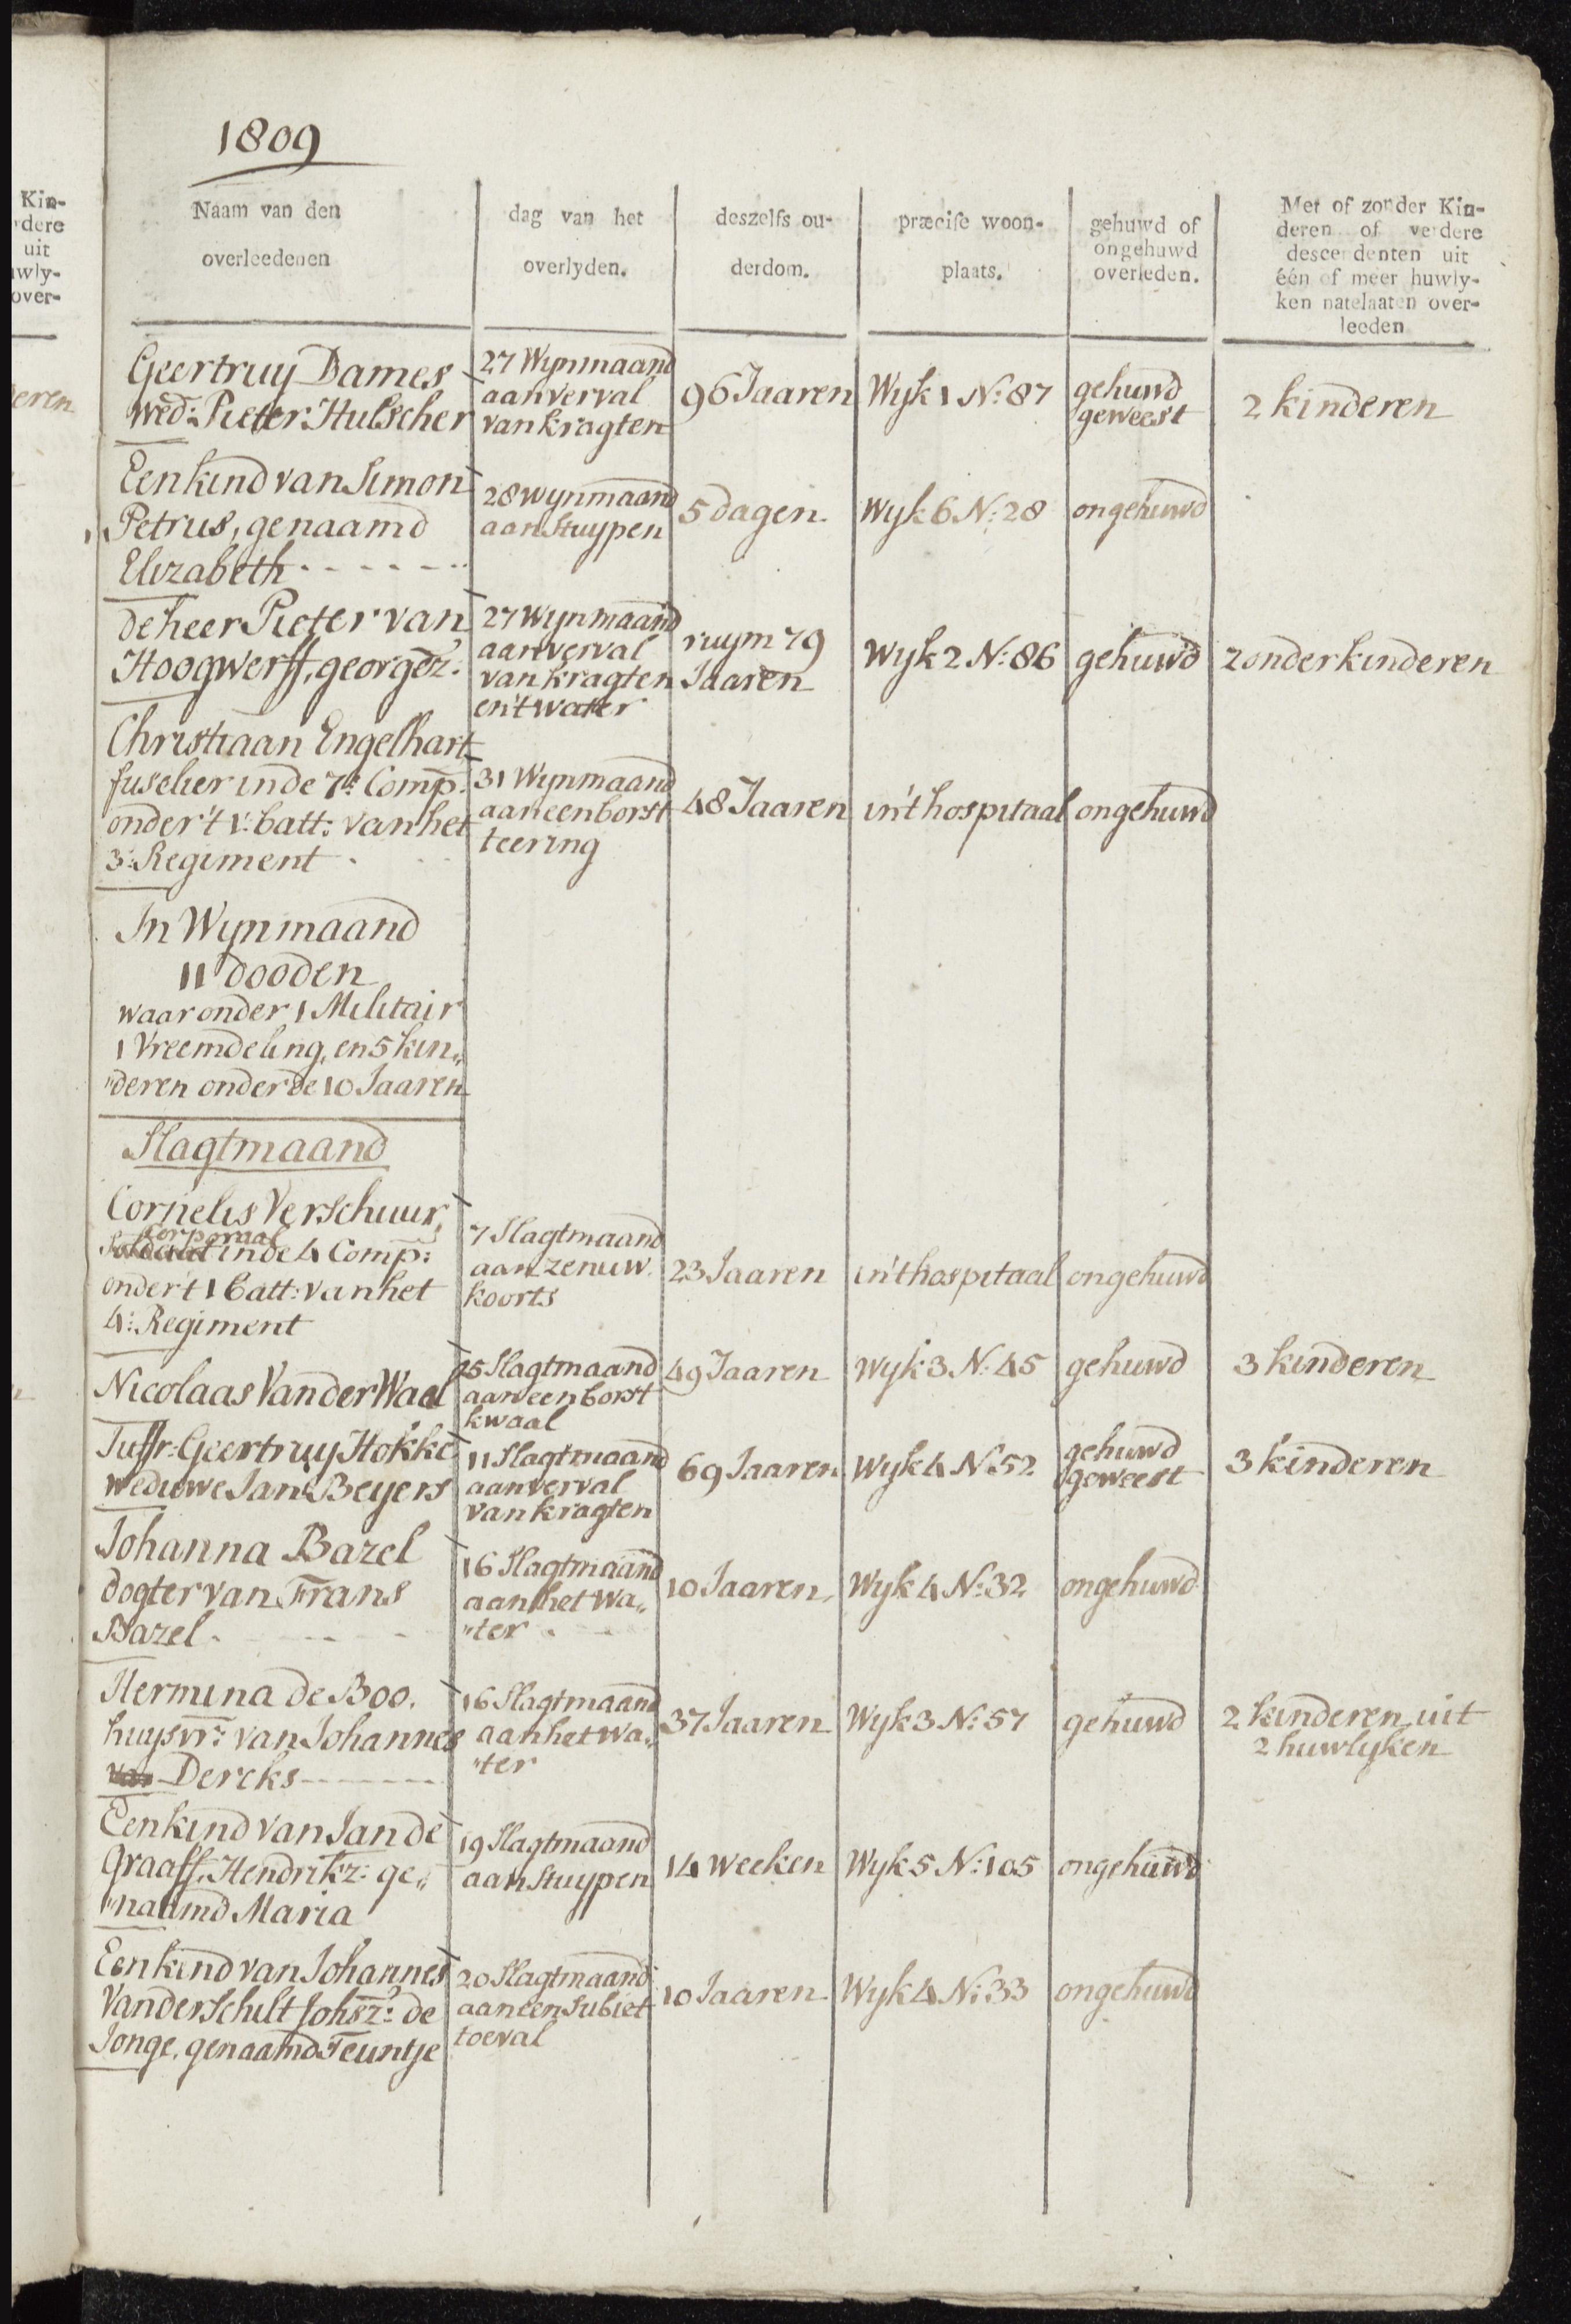 1809
Kin-
rdere
uit
uwly-
over-
eren
Naam van den
overleedenen
dag van het
overlyden.
deszelfs ou-
derdom.
præcise woon-
plaats.
gehuwd of
ongehuwd
overleden.
Met of zonder Kin-
deren of verdere
descendenten uit
één of meer huwly-
ken natelaaten over-
leeden
Geertruy Dames
wed: Pieter Hulscher
27 Wynmaand
aan verval
van kragten
96 Jaaren
Wyk 1 N: 87
gehuwd
geweest
2 kinderen
Een kind van Simon
Petrus, genaamd
Elizabeth
28 wynmaand
aan Stuypen
5 dagen
Wyk 6 N: 28
ongehuwd
de heer Pieter van
Hoogwerff, georgez:
27 Wynmaand
aan verval
van kragten
en 't water
ruym 79
Jaaren
Wyk 2 N: 86
gehuwd
zonder kinderen
Christiaan Engelhart
fuselier in de 7e Comp:
onder 't 1: batt: van het
3: Regiment
31 Wynmaand
aan een borst
teering
48 Jaaren
in 't hospitaal
ongehuwd
In Wynmaand
11 dooden
waar onder 1 Militair
1 Vreemdeling, en 5 kin„
"deren onder de 10 Jaaren
Slagtmaand
Cornelis Verschuur,
Corporaal
Soldaat in de 4 Comp:
onder 't 1 batt: van het
4: Regiment
7 Slagtmaand
aan zenuw
koorts
23 Jaaren
in 't hospitaal
ongehuwd
Nicolaas Van der Waal
15 Slagtmaand
aan een borst
kwaal
49 Jaaren
Wyk 3 N: 45
gehuwd
3 kinderen
Juffr: Geertruy Hokke
weduwe Jan Beyers
11 Slagtmaand
aan verval
van kragten
69 Jaaren
Wyk 4 N: 52
gehuwd
geweest
3 kinderen
Johanna Bazel
dogter van Frans
Bazel
16 Slagtmaand
aan het wa„
"ter
10 Jaaren
Wyk 4 N: 32
ongehuwd
Hermina de Boo.
huysvr: van Johannes
van Dercks
16 Slagtmaand
aan het wa„
"ter
37 Jaaren
Wyk 3 N: 57
gehuwd
2 kinderen uit
2 huwlyken
Een kind van Jan de
Graaff, Hendrikz: ge„
"naamd Maria
19 Slagtmaand
aan Stuypen
14 weeken
Wyk 5 N: 105
ongehuwd
Een kind van Johannes
Van der Schilt Johsz: de
Jonge, genaamd Teuntje
20 Slagtmaand
aan een Subiet
toeval
10 Jaaren
Wyk 4 N: 33
ongehuwd